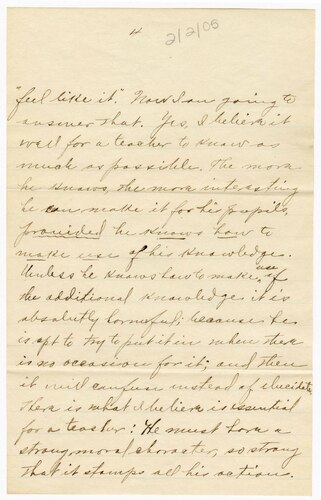 4
2/2/05
"feel like it". Now I am going to
answer that. Yes, I believe it
well for a teacher to know as
much as possible. The more
he knows, the more interesting
he can make it for his pupils,
provided he knows how to
make use of his knowledge.
Unless he knows how to make use of
the additional knowledge it is
absolutly harmful; because he
is apt to try to put it in where there
is no occasion for it; and then
it will confuse instead of elucidate.
There is what I believe is essential
for a teacher: He must have a
strong, moral character, so strong
that it stamps all his actions.